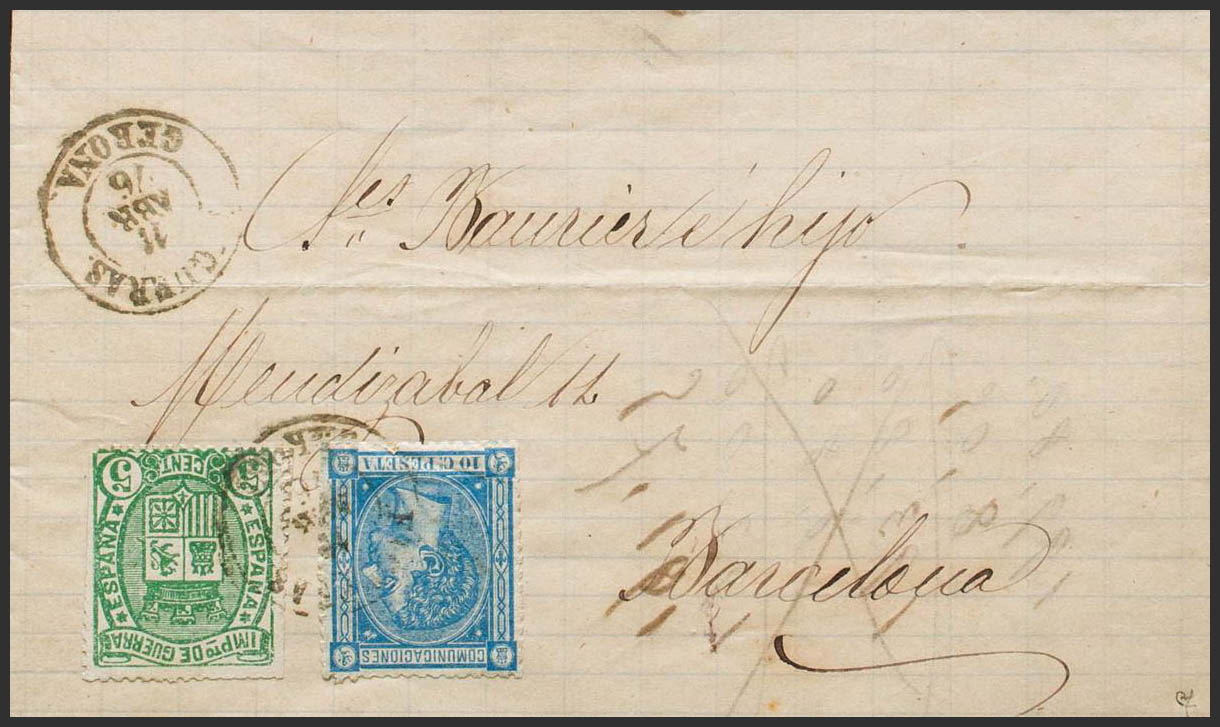 GERONA
11
ABR
76
GUERAS.
Srs Baurier é hijo
Mendizabal 11
Barcelona
5 CENT. 5
ESPAÑA ESPAÑA
IMPTO DE GUERRA
10 C. PESETA
COMUNICACIONES